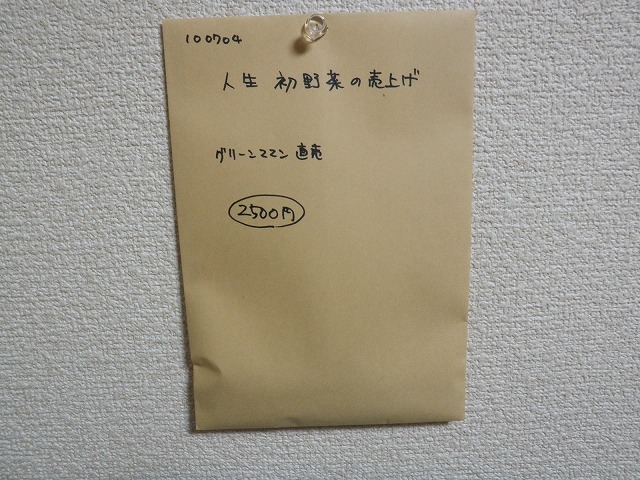 100704
人生 初野菜の売上げ
グリーンママン 直売
2500円